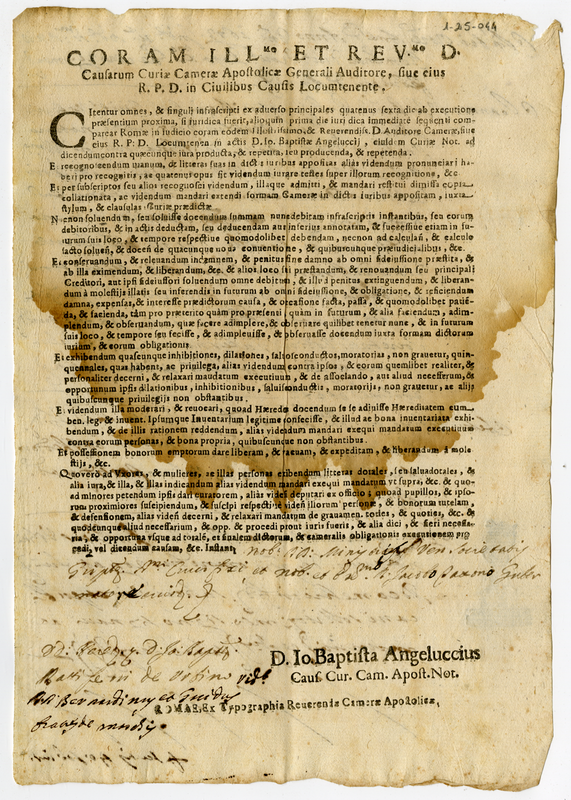 1-25-044
CORAM ILL.mo ET REV.mo D.
Causarum Curiæ Cameræ Apostolicæ Generali Auditore, siue eius
R. P. D. in Ciuilibus Causis Locumtenente.
Citentur omnes, & singuli infrascripti ex aduerso principales quatenus sexta die ab executione
præsentium proxima, si iuridica fuerit, alioquin prima die iuridica immediatè sequenti com-
pareat Romæ in Iudicio coram eodem Illustrissimo, & Reuerendiss. D. Auditore Cameræ, siue
eius R. P. D. Locumtenen. in actis D. Io. Baptistæ Angelucci, eiusdem Curiæ Not. ad
dicendum contra quæcunque iura producta, & repetita, seu producenda, & repetenda.
Et recognoscendum manum, & litteras suas in dictis iuribus appositas aliàs videndum pronunciari ha-
beri pro recognitis, ac quatenus opus sit videndum iurare testes super illorum recognitione, &c.
Et per subscriptos seu alios recognosci videndum, illaque admitti, & mandari restitui dimissa copia
collationata, ac videndum mandari extendi formam Cameræ in dictis iuribus appositam, iuxta
stylum, & clausulas Curiæ prædictæ
Necnon soluendum, seu soluisse docendum summam nunc debitam infrascriptis instantibus, seu eorum
debitoribus, & in actis deductam, seu deducendam aut inferius annotatam, & successiuè etiam in fu-
turum suis loco, & tempore respectiuè quomodolibet debendam, necnon ad calculan. & calculo
facto soluen. & docen. de quacunque noua conuentione, & quibuscunque præiudicialibus, &c.
Et conseruandum, & releuandum indemnem, & penitus sine damno ab omni fideiussione præstita, &
ab illa eximendum, & liberandum, &c. & alios loco sui præstandum, & renouandum seu principali
Creditori, aut ipsi fideiussori soluendum omne debitum, & illud penitus extinguendum, & liberan-
dum à molestijs illatis seu inferendis in futurum ab omni fideiussione, & obligatione, & reficiendum
damna, expensas, & interesse prædictorum causa, & occasione facta, passa, & quomodolibet patiē-
da, & facienda, tàm pro præterito quàm pro præsenti, quàm in futurum, & alia faciendum, adim-
plendum, & obseruandum, quæ facere adimplere, & obseruare quilibet tenetur nunc, & in futurum
suis loco, & tempore seu fecisse, & adimpleuisse, & obseruasse docendum iuxta formam dictorum
iurium, & eorum obligationis.
Et exhibendum quascunque inhibitiones, dilationes, saluosconductos, moratorias, non grauetur, quin-
quennales, quas habent, ac priuilegia, aliàs videndum contra ipsos, & eorum quemlibet realiter, &
personaliter decerni, & relaxari mandatum executiuum, & de associando, aut aliud necessarium, &
opportunum ipsis dilationibus, inhibitionibus, saluisconductis, moratorijs, non grauetur, ac alijs
quibuscunque priuilegijs non obstantibus.
Et videndum illis moderari, & reuocari, quoad Hæredes docendum se se adiuisse Hæreditatem cum
ben. leg. & inuent. Ipsumque Inuentarium legitimè confecisse, & illud ac bona inuentariata exhi-
bendum, & de illis rationem reddendum, aliàs videndum mandari exequi mandatum executiuum
contra eorum personas, & bona propria, quibuscunque non obstantibus.
Et possessionem bonorum emptorum dare liberam, & vacuam, & expeditam, & liberandum à mole-
stijs, &c.
Quo verò ad Vxores, & mulieres, ac illas personas exibendum litteras dotales, seu saluadotales, &
alia iura, & illa, & illas indicandum aliàs videndum mandari exequi mandatum vt supra, &c. & quo-
ad minores petendum ipsis dari curatorem, aliàs videri deputari ex officio, quoad pupillos, & ipso-
rum proximiores suscipiendum, & suscipi respectiuè videri illorum personæ, & bonorum tutelam,
& defensionem, aliàs videri decerni, & relaxari mandatum de grauamen. toties, & quoties, &c. &
quodcunque aliud necessarium, & opp. & procedi prout iuris fuerit, & alia dici, & fieri necessa-
ria, & opportuna vsque ad totalē, et finalem dictorum, & cameralis obligationis executionem pro
cedi, vel dicendum causam, &c. Instant.
D. Io. Baptista Angeluccius
Caus. Cur. Cam. Apost. Not.
ROMAE, Ex Typographia Reuerendæ Cameræ Apostolicæ,